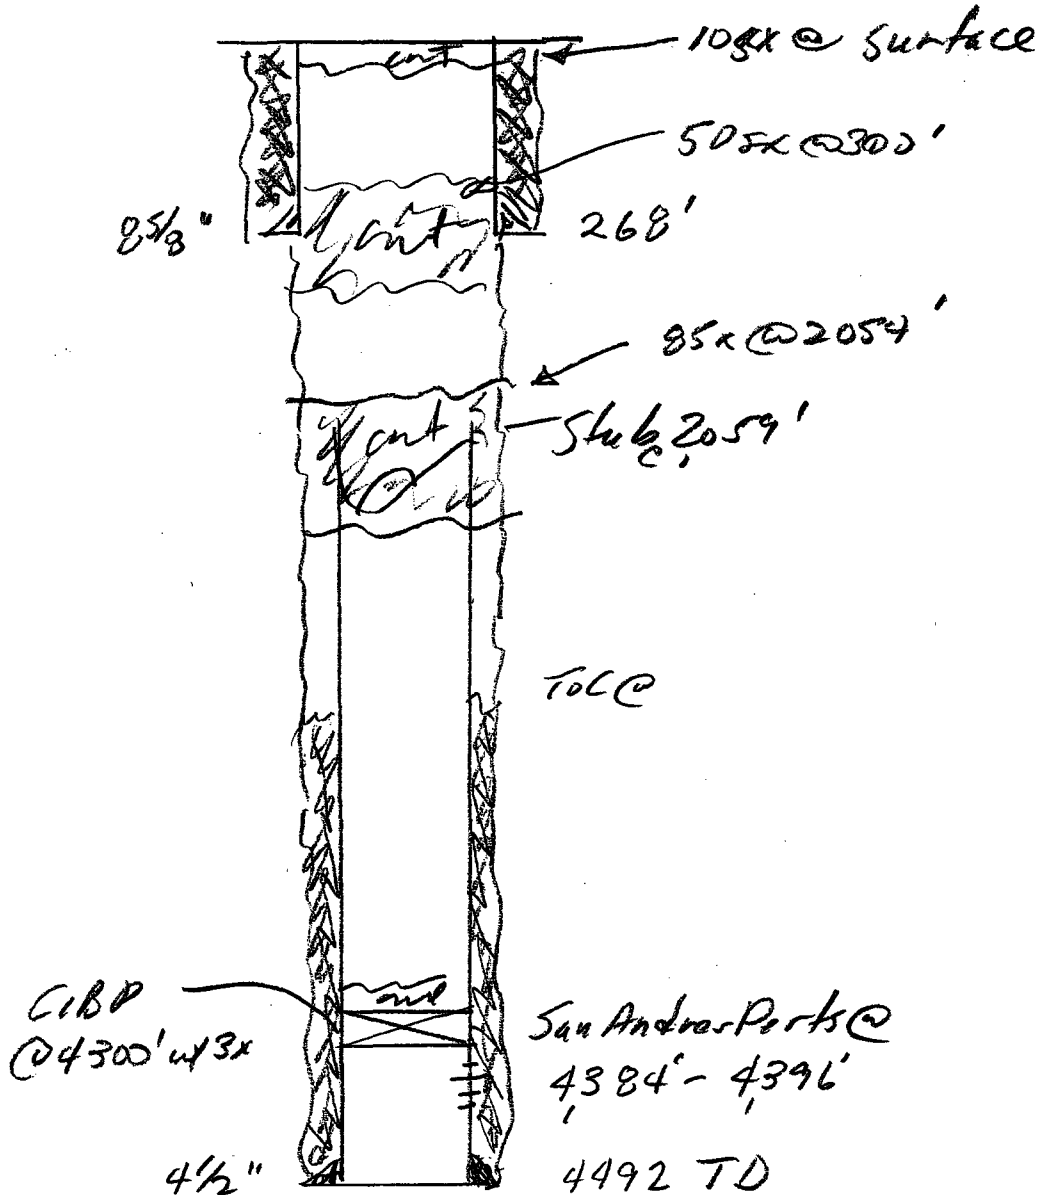 10sx @ Surface
cmt
50sx @ 300'
8 5/8"
cmt
268'
85x @ 2054'
cmt
Stub @ 2059'
TOC @
CIBP
@ 4300' w/ 3x
cmt
San Andres Perfs @
4,384' - 4,396'
4 1/2"
4492 TD